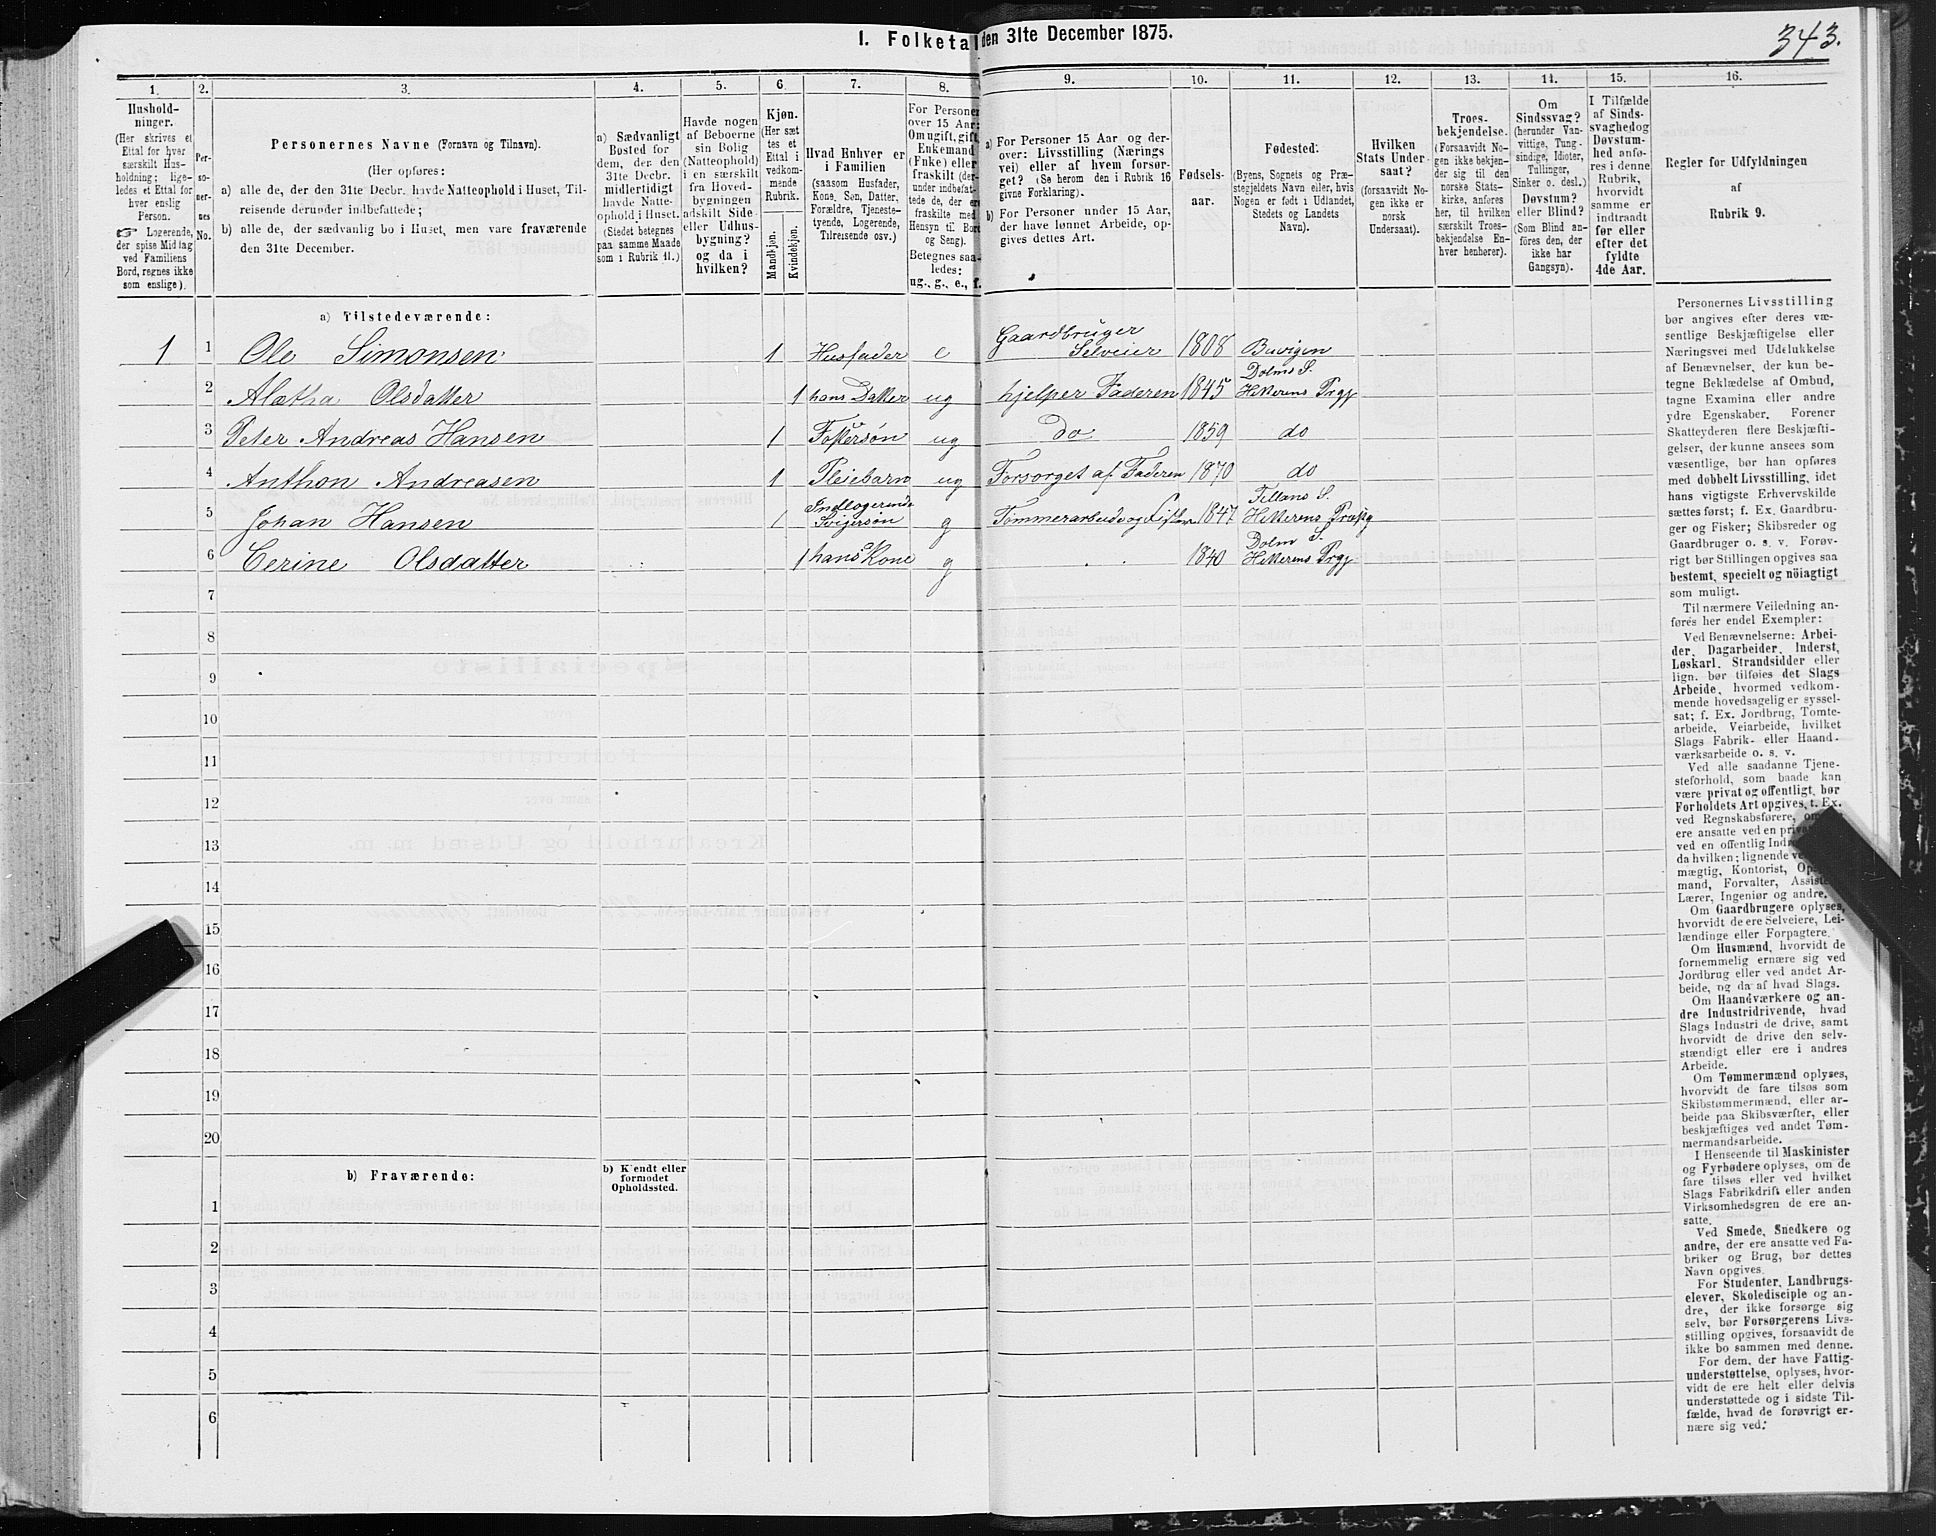 I. Folketal den 31te December 1875.
343.
1.
2.
3.
4.
5.
6.
7.
8.
9.
10.
11.
12.
13.
14.
15.
16.
Hushold-
ninger.
(Her skrives et
Ettal for hver
særskilt Hus-
holdning; lige-
ledes et Ettal for
hver enslig
Person.
☞ Logerende,
der spise Middag
ved Familiens
Bord, regnes ikke
som enslige).
Per-
so-
ner-
nes
No.
Personernes Navne (Fornavn og Tilnavn).
(Her opføres:
a) alle de, der den 31te Decbr. havde Natteophold i Huset, Til-
reisende derunder indbefattede;
b) alle de, der sædvanlig bo i Huset, men vare fraværende
den 31te December.
a) Sædvanligt
Bosted for
dem, der den
31te Decbr.
midlertidigt
havde Natte-
ophold i Huset.
(Stedet betegnes
paa samme Maade
som i Rubrik 11.)
Havde nogen
af Beboerne
sin Bolig
(Natteophold)
i en særskilt
fra Hoved-
bygningen
adskilt Side-
eller Udhus-
bygning?
og da i
hvilken?
Kjøn.
(Her sæt
tes et
Ettal i
vedkom-
mende
Rubrik.
Mandkjøn.
Kvindekjøn.
Hvad Enhver er
i Familien
(saasom Husfader,
Kone, Søn, Datter,
Forældre, Tjeneste-
tyende, Logerende,
Tilreisende osv.)
For Personer
over 15 Aar:
Om ugift, gift,
Enkemand
(Enke) eller
fraskilt (der-
under indbefat-
tede de, der ere
fraskilte med
Hensyn til Bord
og Seng).
Betegnes saa-
ledes:
ug., g., e., f.
a) For Personer 15 Aar og der-
over: Livsstilling (Nærings
vei) eller af hvem forsør-
get? (Se herom den i Rubrik 16
givne Forklaring).
b) For Personer under 15 Aar,
der have lønnet Arbeide, op-
gives dettes Art.
Fødsels-
aar.
Fødested.
(Byens, Sognets og Præ-
stegjeldets Navn eller, hvis
Nogen er født i Udlandet,
Stedets og Landets
Navn).
Hvilken
Stats Under-
saat?
(forsaavidt No-
gen ikke er
norsk
Undersaat).
Troes-
bekjendelse.
(Forsaavidt No-
gen ikke bekjen-
der sig til den
norske Stats-
kirke, anføres
her, til hvilken
særskilt Troes-
bekjendelse En-
hver henhører).
Om
Sindssvag?
(herunder Van-
vittige, Tung-
sindige, Idioter,
Tullinger,
Sinker o. desl.)
Døvstum?
eller Blind?
(Som Blind an-
føres den, der
ikke har
Gangsyn).
I Tilfælde
af Sinds-
svaghed og
Døvstum-
hed anfø-
res i denne
Rubrik,
hvorvidt
samme er
indtraadt
før eller
efter det
fyldte
4de Aar.
Regler for Udfyldningen
af
Rubrik 9.
a) Tilstedeværende:
1 1 Ole Simonsen 1 Husfader e Gaardbruger
Selveier 1808 Buvigen
2 Alætha Olsdatter 1 hans Datter ug hjelper Faderen 1845 Dolms S.
Hitterens Prgj
3 Peter Andreas Hansen 1 Fostersøn ug do 1859 do
4 Anthon Andreasen 1 Pleiebarn ug Forsorget af Faderen 1870 do
5 Johan Hansen 1 Indlogerende
Svigersøn g Tømmerarbeide og Fisker 1847 Fillans S.
Hitterens Præstg
6 Cerine Olsdatter 1 hans Kone g 1840 Dolm S.
Hitterens Prgj
7
8
9
10
11
12
13
14
15
16
17
18
19
20
b) Fraværende:
b) Kjendt eller
formodet
Opholdssted.
1
2
3
4
5
6
Personernes Livsstilling
bør angives efter deres væ-
sentlige Beskjæftigelse eller
Næringsvei med Udelukkelse
af Benævnelser, der kun be-
tegne Beklædelse af Ombud,
tagne Examina eller andre
ydre Egenskaber. Forener
Skatteyderen flere Beskjæfti-
gelser, der kunne ansees som
væsentlige, bør han opføres
med dobbelt Livsstilling, idet
hans vigtigste Erhvervskilde
sættes først; f. Ex. Gaardbru-
ger og Fisker; Skibsreder og
Gaardbruger o. s. v. Forøv-
rigt bør Stillingen opgives saa
bestemt, specielt og nöiagtigt
som muligt.
Til nærmere Veiledning an-
føres her endel Exempler:
Ved Benævnelserne: Arbei-
der, Dagarbeider, Inderst,
Løskarl, Strandsidder eller
lign. bør tilføies det Slags
Arbeide, hvormed vedkom-
mende hovedsagelig er syssel-
sat; f. Ex. Jordbrug, Tomte-
arbeide, Veiarbeide, hvilket
Slags Fabrik- eller Haand-
værksarbeide o. s. v.
Ved alle saadanne Tjene-
steforhold, som baade kan
være privat og offentligt, bør
Forholdets Art opgives, t. Ex.
ved Regnskabsførere, om
ere ansatte ved en
ved en offentlig
da hvilken; lignende
mægtig, Kontorist,
mand, Forvalter,
Lærer, Ingeniør og andre.
Om Gaardbrugere oplyses,
hvorvidt de ere Selveiere, Lei-
lændinge eller Forpagtere.
Om Husmænd, hvorvidt de
fornemmelig ernære sig ved
Jordbrug eller ved andet Ar-
beide, og da af hvad Slags.
Om Haandværkere og an-
dre Industridrivende, hvad
Slags Industri de drive, samt
hvorvidt de drive den selv-
stændigt eller ere i andres
Arbeide.
Om Tømmermænd oplyses,
hvorvidt de fare tilsøs som
Skibstømmermænd, eller ar-
beide paa Skibsværfter, eller
beskjæftiges ved andet Tøm-
mermandsarbeide.
I Henseende til Maskinister
og Fyrbødere oplyses, om de
fare tilsøs eller ved hvilket
Slags Fabrikdrift eller anden
Virksomhedsgren de ere an-
satte.
Ved Smede, Snedkere og
andre, der ere ansatte ved Fa-
briker og Brug, bør dettes
Navn opgives.
For Studenter, Landbrugs-
elever, Skoledisciple og an-
dre, der ikke forsørge sig
selv, bør Forsørgerens Livs-
stilling opgives, forsaavidt de
ikke bo sammen med denne.
For dem, der have Fattig-
understøttelse, oplyses, hvor-
vidt de ere helt eller delvis
understøttede og i sidste Til-
fælde, hvad de forøvrigt er-
nære sig ved.